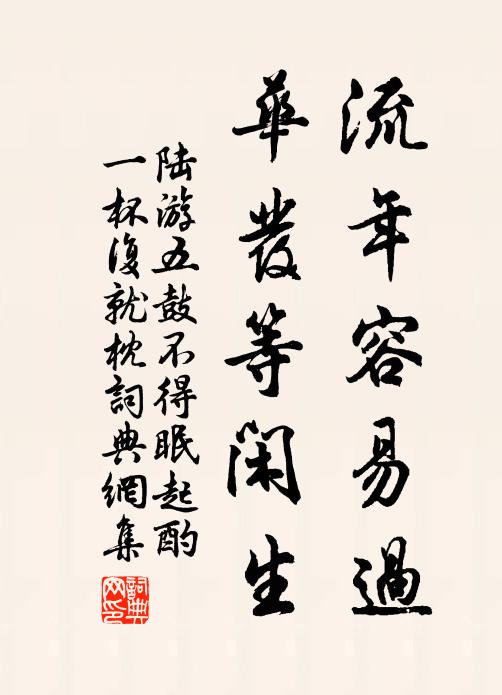 流年容易過
華發等閑生
陆游五鼓不得眠起酌
一杯復就枕詞典網集
詞典
网印